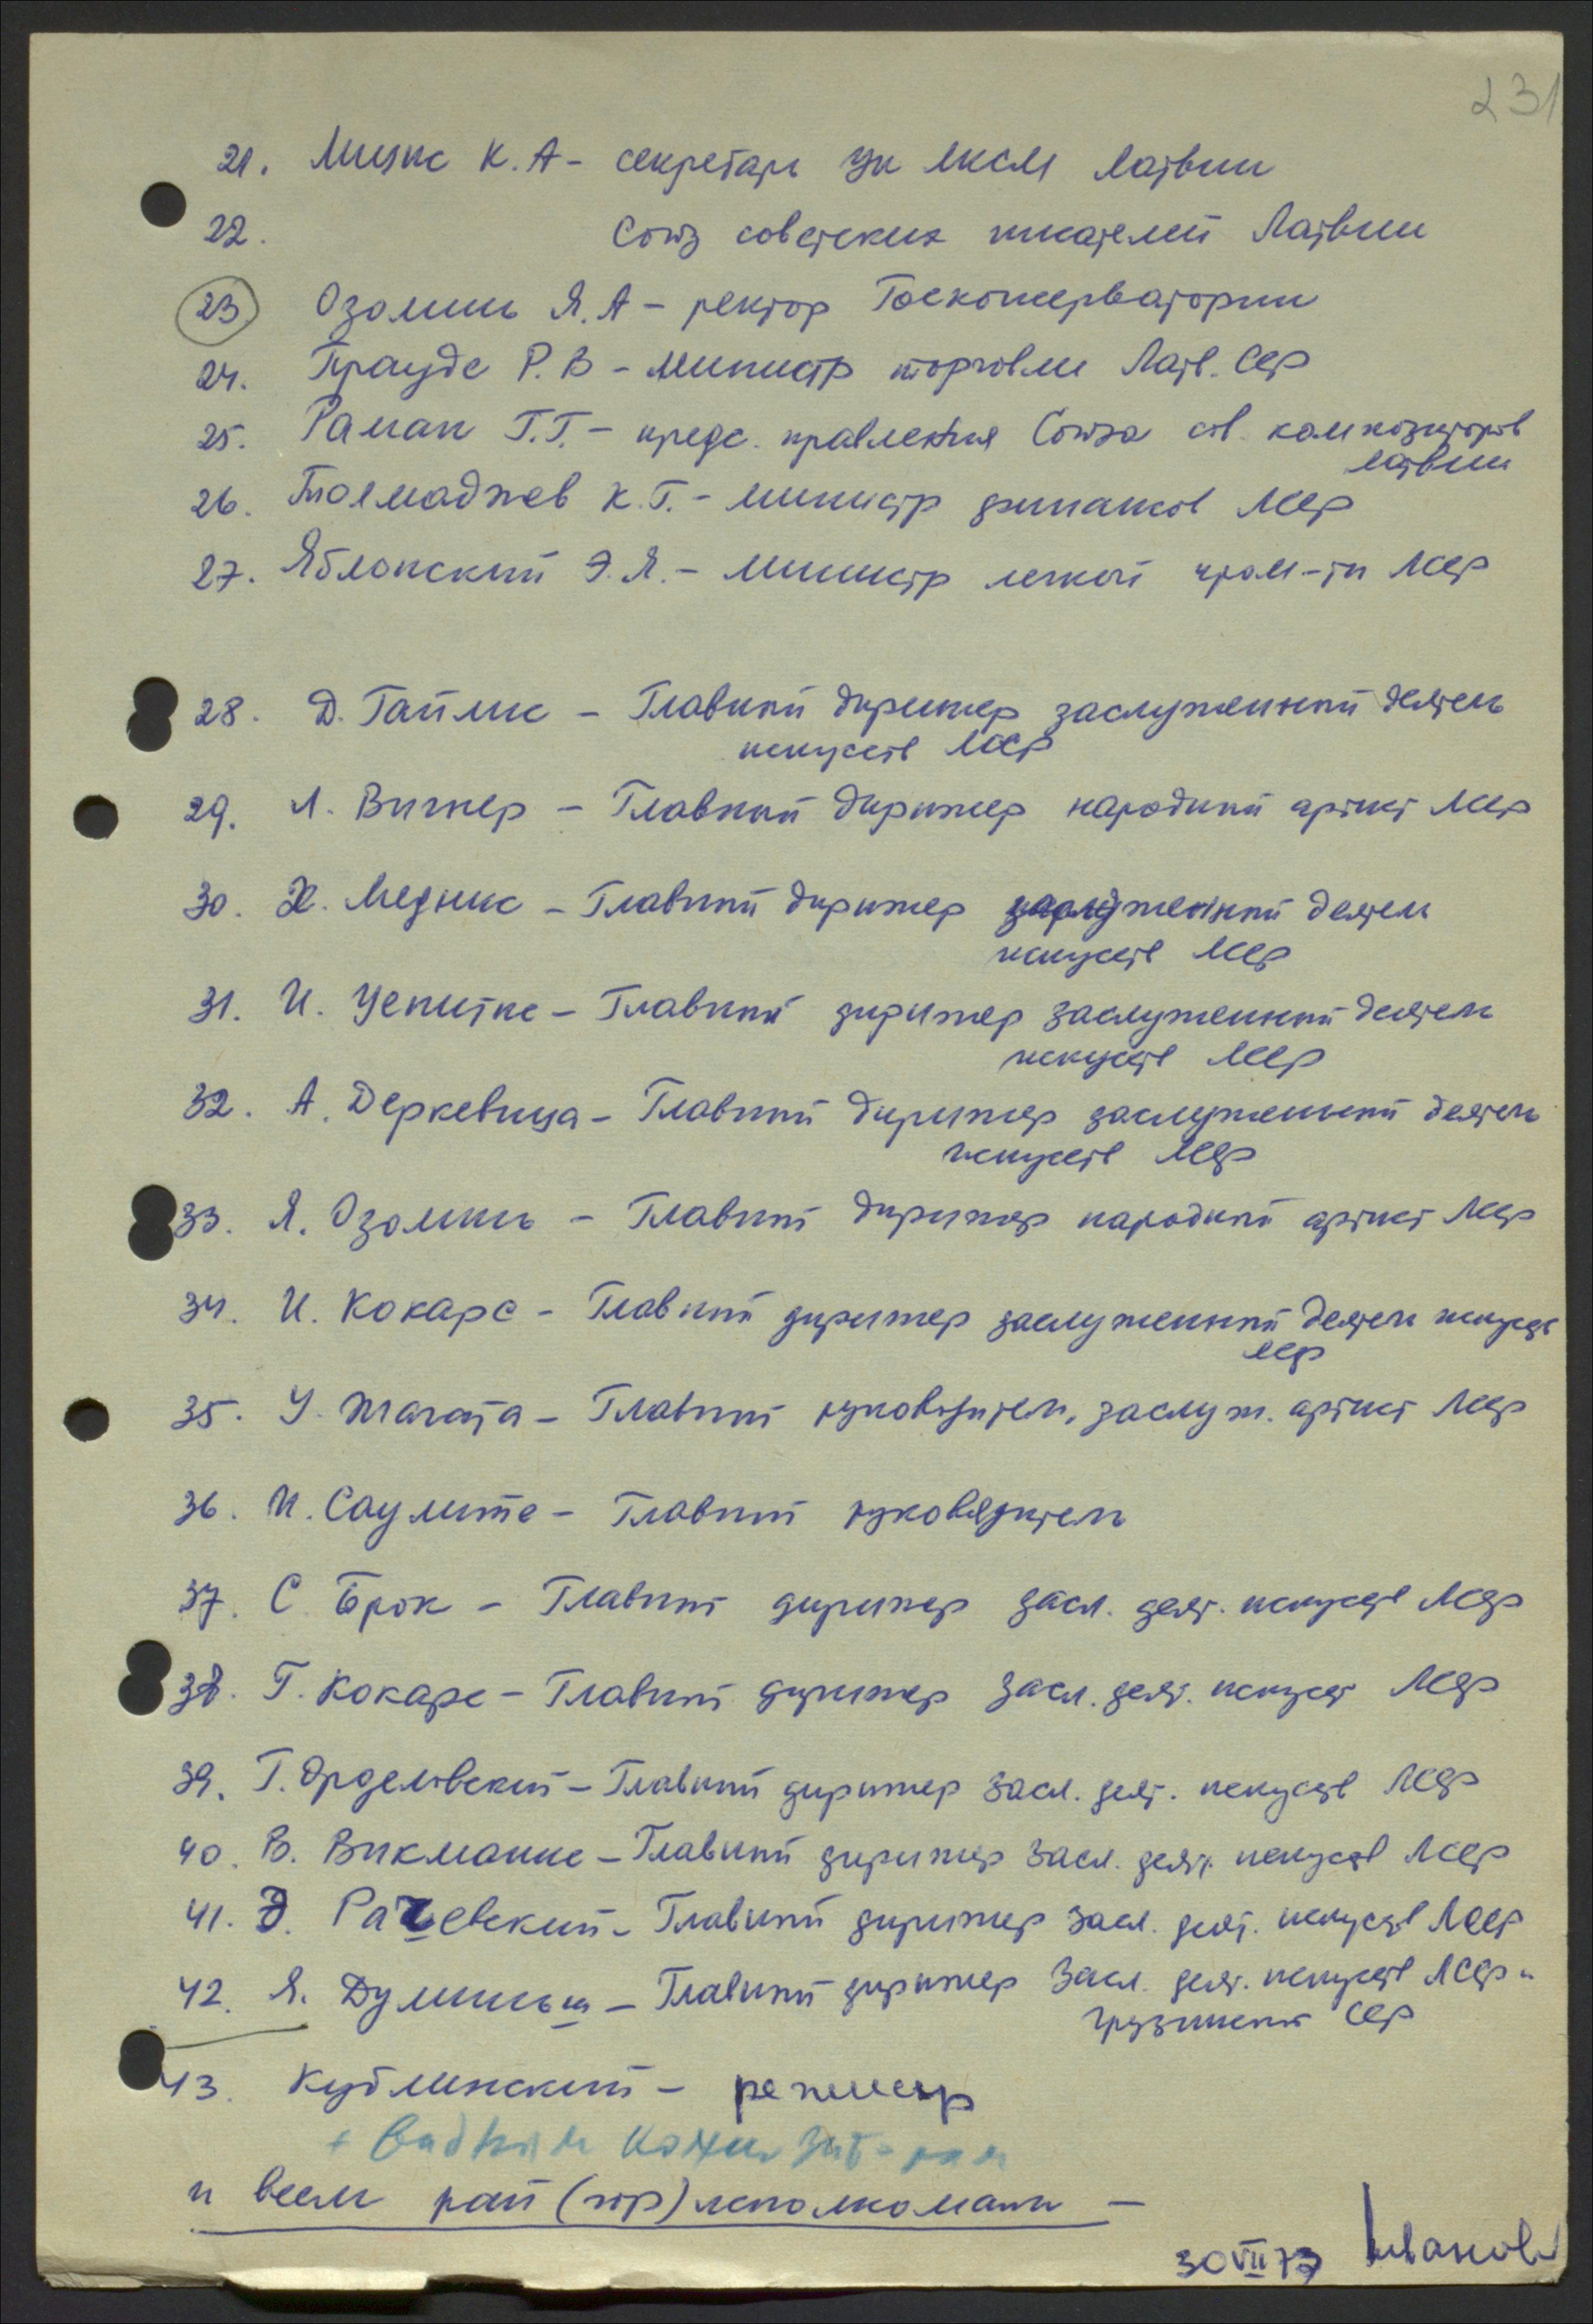 231
21. Лицис К.А - секретарь ЦК ЛКСМ Латвии
22. Союз советских писателей Латвии
23 Озолинь Я.А - ректор Госконсерватории
24. Прауде Р.В - министр торговли Латв. ССР
25. Раман Г.Г. - предс. правления Союза сов. композиторов
Латвии
26. Толмаджев К.Г. - министр финансов ЛССР
27. Яблонский Э.Я. - министр легкой пром-ти ЛССР
28. Д. Гайлис - Главный дирижер заслуженный деятель
искусств ЛССР
29. Л. Вигнер - Главный дирижер народный артист ЛССР
30. Х. Медник - Главный дирижер заслуженный деятель
искусств ЛССР
31. И. Цепитис - Главный дирижер заслуженный деятель
искусств ЛССР
32. А. Деркевица - Главный дирижер заслуженный деятель
искусств ЛССР
33. Я. Озолинь - Главный дирижер народный артист ЛССР
34. И. Кокарс - Главный дирижер заслуженный деятель искусств
ЛССР
35. У. Жагата - Главный руководитель, заслуж. артист ЛССР
36. И. Саулите - Главный руководитель
37. С Брок - Главный дирижер засл. деят. искусств ЛССР
38. Г. Кокарс - Главный дирижер засл. деят. искусств ЛССР
39. Г. Орделовский - Главный дирижер засл. деят. искусств ЛССР
40. В. Викманис - Главный дирижер засл. деят. искусств ЛССР
41. Э. Рачевский - Главный дирижер засл. деят. искусств ЛССР
42. Я. Думиньш - Главный дирижер засл. деят. искусств ЛССР и
Грузинской ССР
43. Кублинский - режиссер
+
и всем рай (гор) исполкомам -
30 VII 73 Иванов